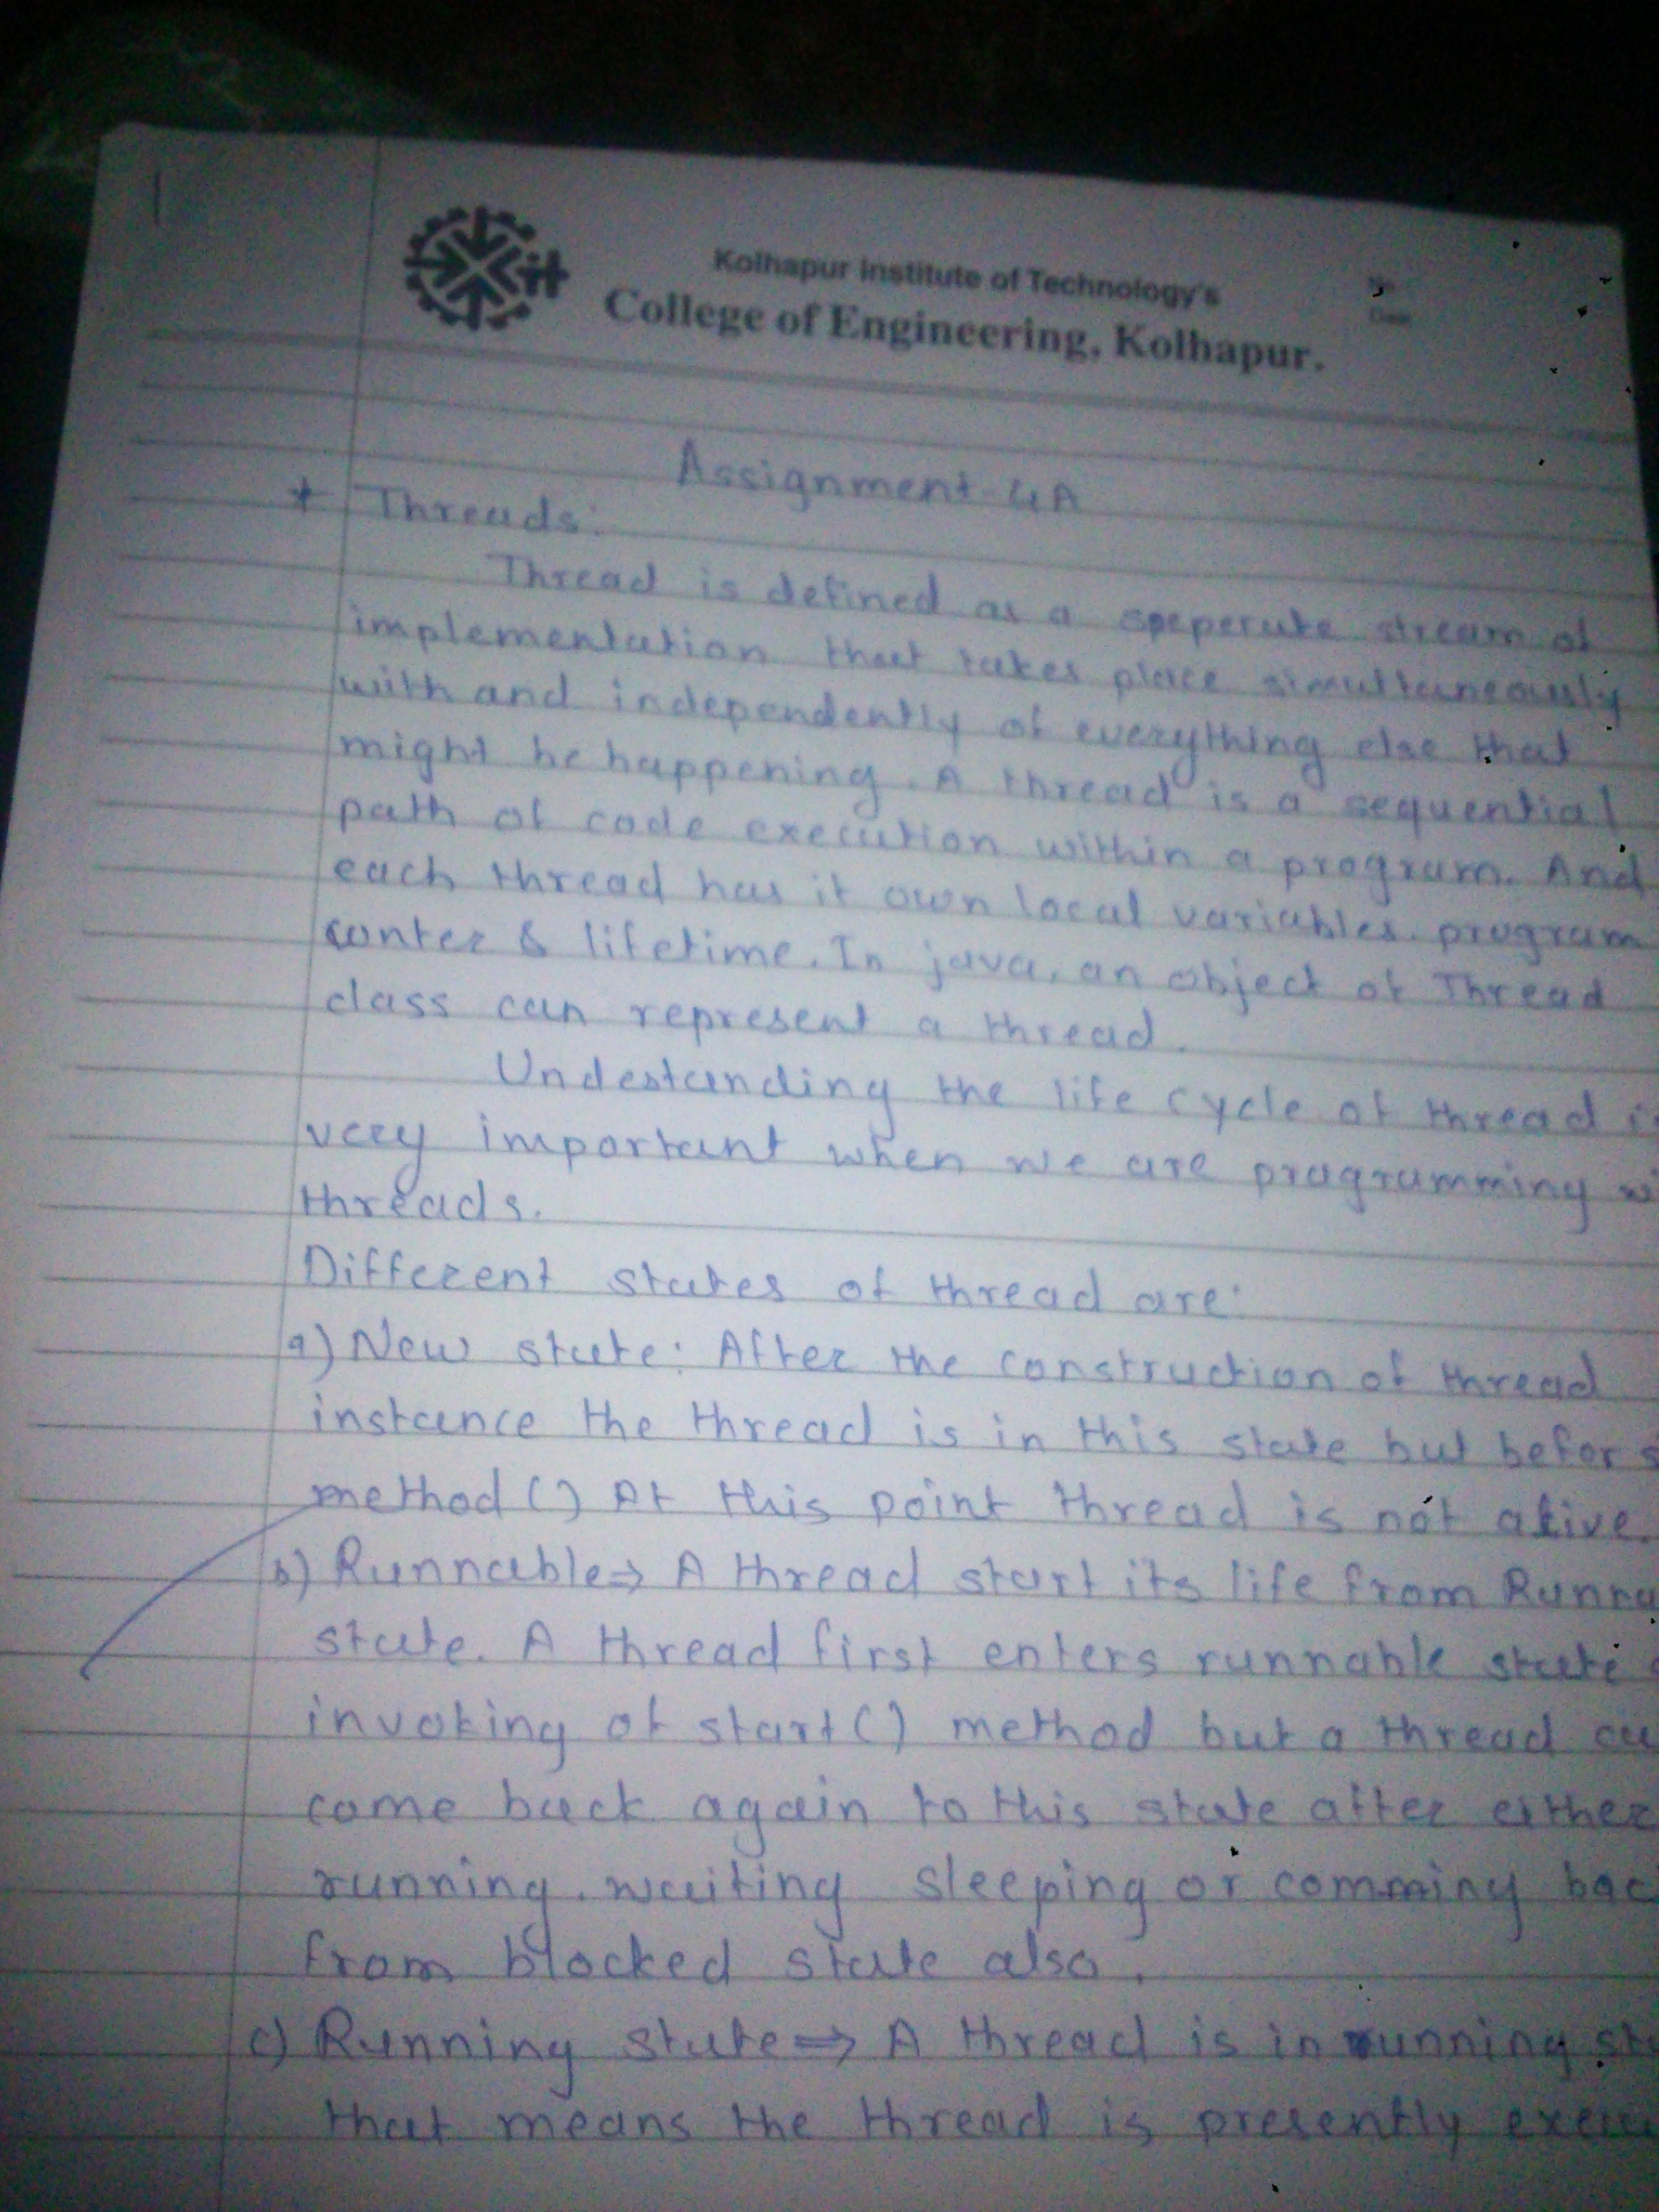 Kolhapur Institute of Technology's
College of Engineering, Kolhapur.
Assignment-4A
* Threads:
Thread is defined as a speperate stream of
implementation that takes place simultaneously
with and independently of everything else that
might be happening. A thread is a sequential
path of code execution within a program. And
each thread has it own local variables. program
conter & lifetime. In java, an object of Thread
class can represent a thread.
Undestanding the life cycle of thread
very important when we are programming
threads.
Different states of thread are:
a) New state: After the construction of thread
instance the thread is in this state but befor
method () At this point thread is not alive.
b) Runnable⇒ A thread start its life from
state. A thread first enters runnable state
invoking of start() method but a thread
come back again to this state after either
running. waiting sleeping or comming bac
from blocked state also.
c) Running state⇒ A thread is in running
that means the thread is presently